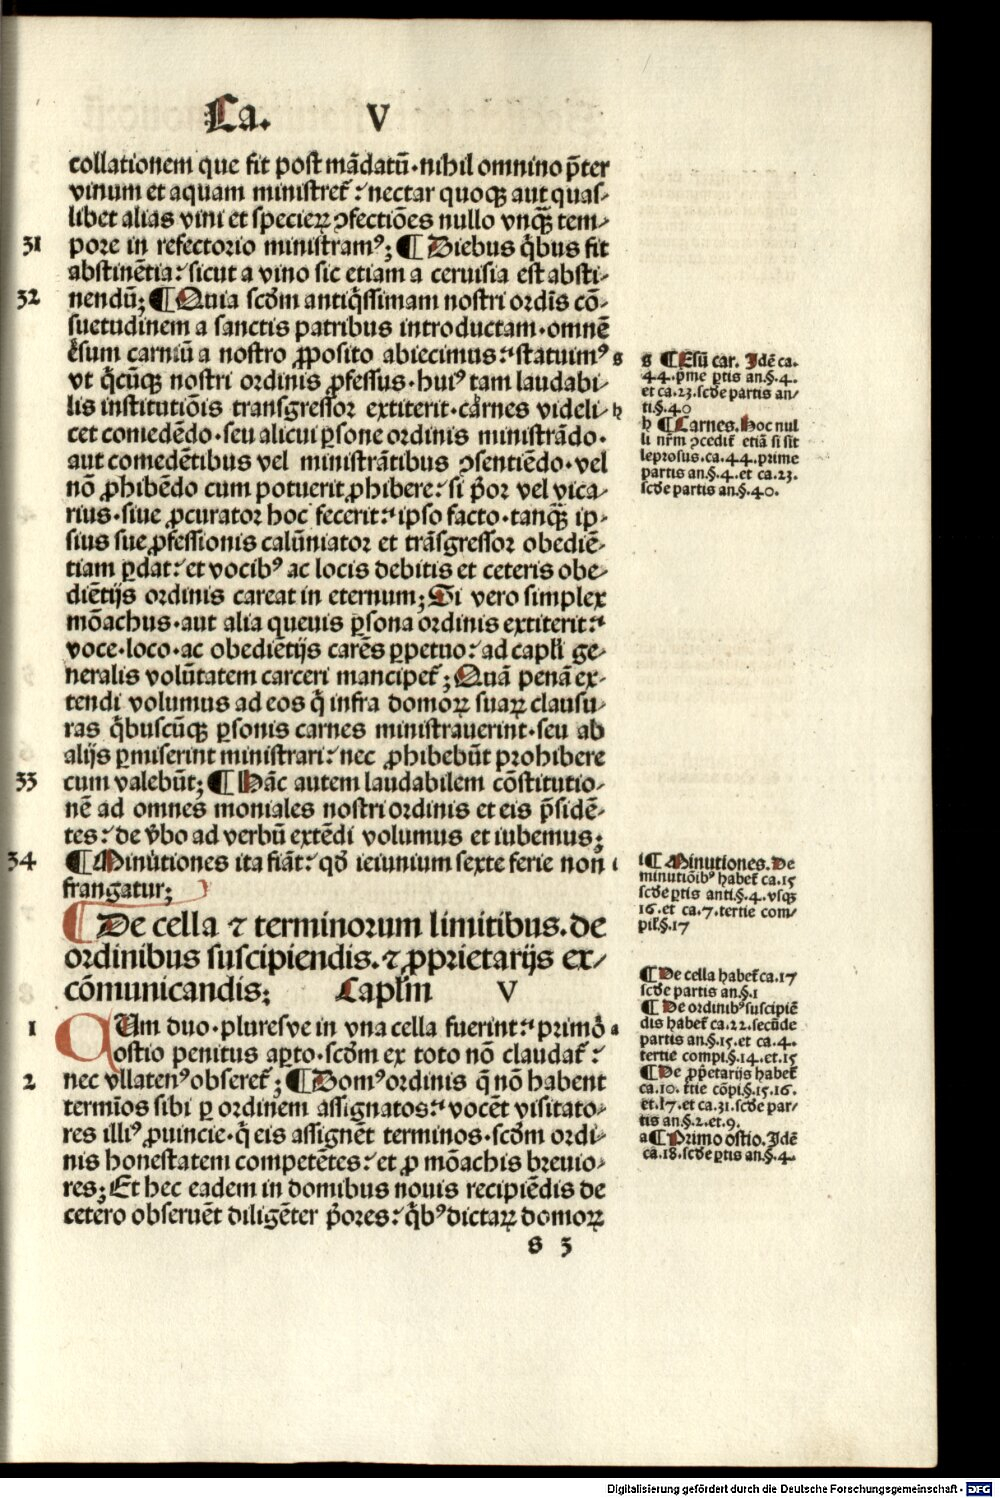 Ca. V
collationem que fit post mādatū·nihil omnino p̄ter
vinum et aquam ministret᷑:nectar quoqꝫ aut quas-
libet alias vini et specieꝝ ꝯfectiōes nullo vnqꝫ̄ tem-
31 pore in refectorio ministramꝰ; ¶ Diebus q̄bus fit
abstinētia:sicut a vino sic etiam a ceruisia est absti-
32 nendū; ¶ Quia scd̄m antiq̄ssimam nostri ordīs cō-
suetudinem a sanctis patribus introductam·omnē
esum carniū a nostro ꝓposito abiecimus:statuimꝰ g
vt q̄cūqꝫ nostri ordinis ꝓfessus·huiꝰ tam laudabi-
lis institutiōis transgressor extiterit·carnes videli- h
cet comedēdo·seu alicui ꝑsone ordinis ministrādo·
aut comedētibus vel ministrātibus ꝯsentiēdo·vel
nō ꝓhibēdo cum potuerit ꝓhibere:si p̄or vel vica-
rius·siue ꝓcurator hoc fecerit:ipso facto·tanqꝫ̄ ip-
sius sue ꝓfessionis calūniator et trāsgressor obediē-
tiam ꝑdat:et vocibꝰ ac locis debitis et ceteris obe-
diētijs ordinis careat in eternum; Si vero simplex
mōachus·aut alia queuis ꝑsona ordinis extiterit:
voce·loco·ac obediētijs carēs ꝑpetuo:ad capl̄i ge-
neralis volūtatem carceri mancipet᷑; Quā penā ex-
tendi volumus ad eos q̄ infra domoꝝ suaꝝ clausu-
ras q̄buscūqꝫ ꝑsonis carnes ministrauerint·seu ab
alijs ꝑmiserint ministrari:nec ꝓhibebūt prohibere
33 cum valebūt; ¶ Hāc autem laudabilem cōstitutio-
nē ad omnes moniales nostri ordinis et eis p̄sidē-
tes:de v̄bo ad verbū extēdi volumus et iubemus;
34 ¶ Minutiones ita fiāt:qd̄ ieiunium sexte ferie non i
frangatur;
¶ De cella ⁊ terminorum limitibus.de
ordinibus suscipiendis.⁊ ꝓprietarijs ex-
cōmunicandis: Capl̄m V
1 QUm duo·pluresve in vna cella fuerint:primo a
ostio penitus aꝑto·scd̄m ex toto nō claudat᷑:
2 nec vllatenꝰ obseret᷑; ¶ Domꝰ ordinis q̄ nō habent
termīos sibi ꝑ ordinem assignatos:vocēt visitato-
res illiꝰ ꝓuincie·q̄ eis assignēt terminos·scd̄m ordi-
nis honestatem competētes:et ꝓ mōachis breuio-
res; Et hec eadem in domibus nouis recipiēdis de
cetero obseruēt diligēter p̄ores:q̄bꝰ dictaꝝ domoꝝ
s 3
g ¶ Esū car. Idē ca.
44. p̄me ꝑtis an.§.4.
et ca.23.scd̄e partis an-
ti.§.40
h ¶ Carnes. Hoc nul
li nr̄m ꝯcedit᷑ etiā si sit
leprosus.ca.44.prime
partis an.§.4.et ca.23.
scd̄e partis an.§.40.
i ¶ Minutiones. De
minutiōibꝰ habet᷑ ca.15
scd̄e ꝑtis anti.§.4.vsqꝫ
16.et ca.7.tertie com-
pil.§.17
¶ De cella habet᷑ ca.17
scd̄e partis an.§.1
¶ De ordinibꝰ suscipiē
dis habet᷑ ca.22.secūde
partis an.§.15.et ca.4.
tertie compi.§.14.et.15
¶ De ꝓp̄etarijs habet᷑
ca.10. t̄tie cōpi.§.15.16.
et.17.et ca.31.scd̄e par-
tis an.§.2.et.9.
a ¶ Primo ostio. Idē
ca.18.scd̄e ꝑtis an.§.4.
Digitalisierung gefördert durch die Deutsche Forschungsgemeinschaft - DFG